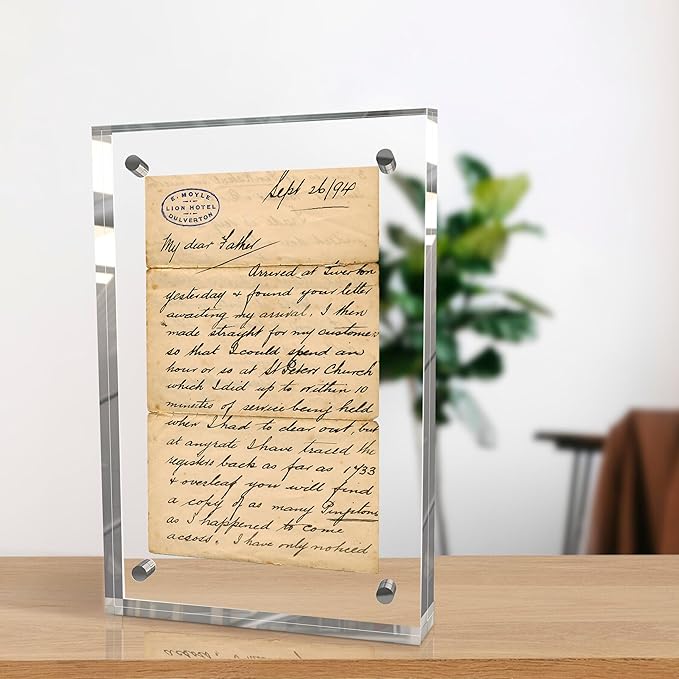 E. MOYLE
LION HOTEL
DULVERTON
Sept 26/94
My dear Father
Arrived at Tiverton
yesterday & found your letter
awaiting my arrival. I then
made straight for my customers
so that I could spend an
hour or so at St Peters Church
which I did up to within 10
minutes of service being held
when I had to clear out, but
at anyrate I have traced the
registers back as far as 1733
& overleaf you will find
a copy of as many Pimptons
as I happened to come
across. I have only noticed